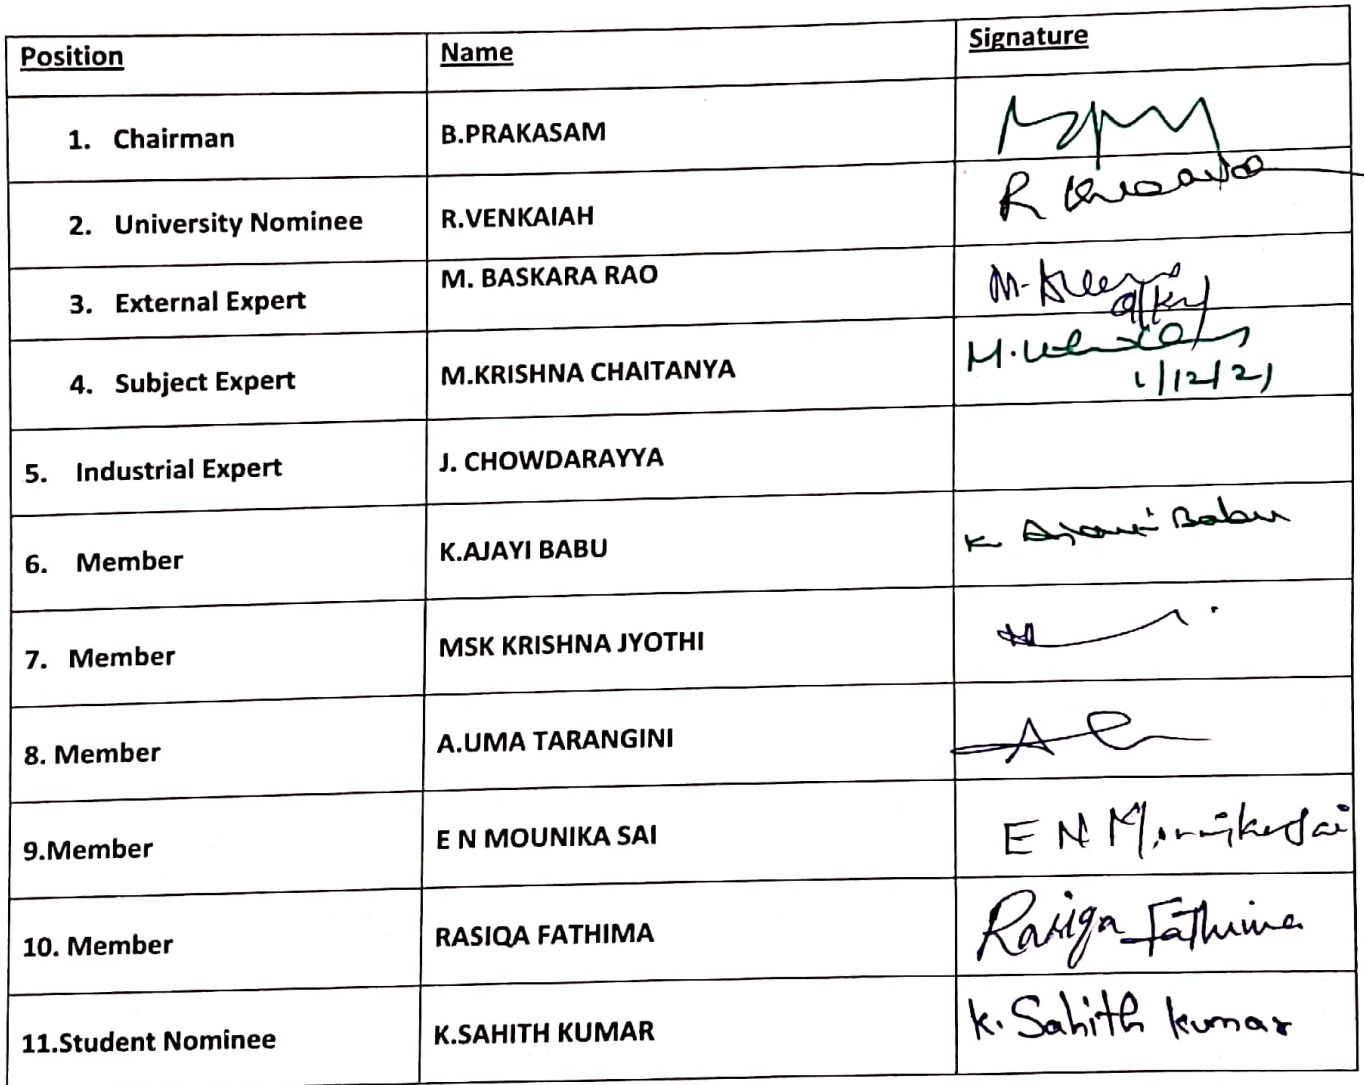 Position Name Signature
1. Chairman B.PRAKASAM
2. University Nominee R.VENKAIAH R
3. External Expert M. BASKARA RAO M.
4. Subject Expert M.KRISHNA CHAITANYA M.
1/12/21
5. Industrial Expert J. CHOWDARAYYA
6. Member K.AJAYI BABU K Ajayi Babu
7. Member MSK KRISHNA JYOTHI
8. Member A.UMA TARANGINI A
9.Member E N MOUNIKA SAI E N Mounika Sai
10. Member RASIQA FATHIMA Rasiqa Fathima
11.Student Nominee K.SAHITH KUMAR K. Sahith kumar